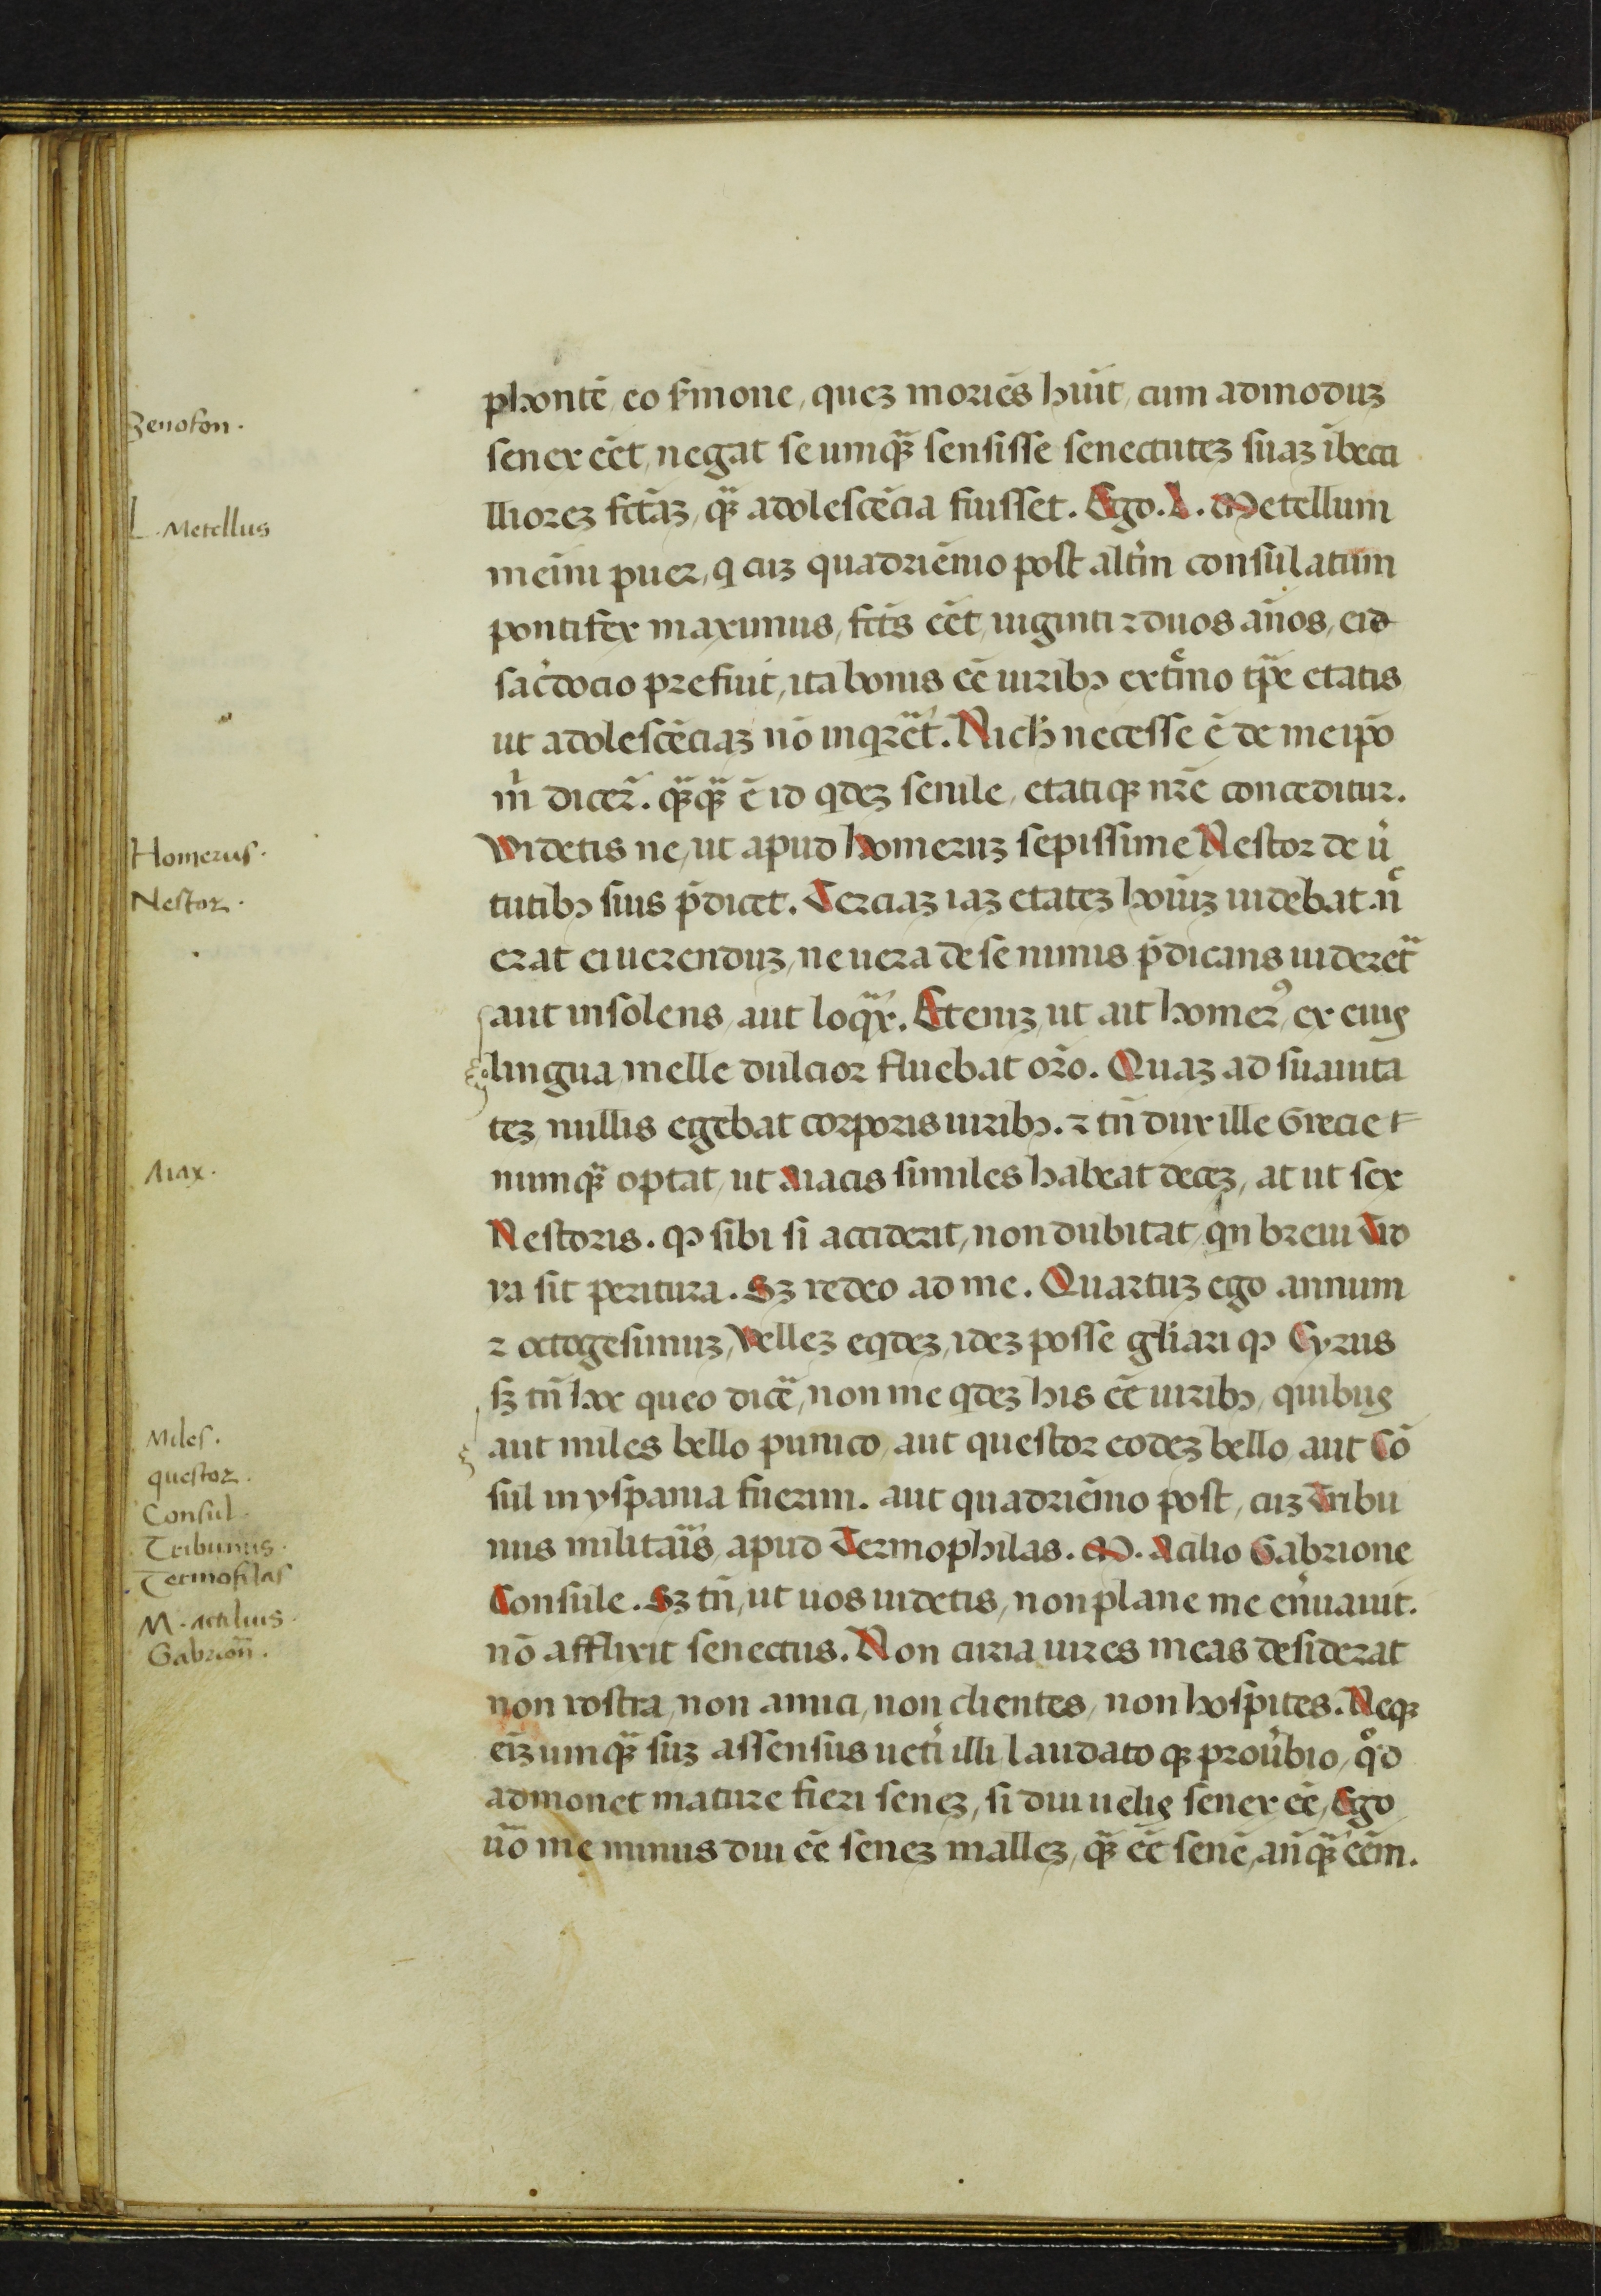 Zenofon.
L. Metellus
Homerus.
Nestor.
Aiax.
Miles.
questor.
Consul.
Tribunus.
Termofilas
M. Attilius.
Gabrion̄.
phontē, eo s̄mone, queꝫ moriēs hūit, cum admoduꝫ
senex eēt, negat se umqꝫ̄ sensisse senectuteꝫ suaꝫ ībeci
llioreꝫ fctāꝫ, qꝫ̄ adolescēcia fuisset. Ego. L. Metellum
meīni puer, q cuꝫ quadriēnio post altīn consulatum
pontifex maximus, fctūs eēt, uiginti ⁊ duos an̄os, eid
sac̄docio prefuit, ita bonis eē uiribꝫ extͤmo tp̄e etatis
ut adolescēciaꝫ nō inqͣreͬt. Nich̄ necesse ē de meip̄o
m̄ dicer̄. qꝫ̄qꝫ̄ ē id qdeꝫ senile, etatiqꝫ nr̄e conceditur.
Videtis ne, ut apud homeruꝫ sepissime Nestor de ū
tutibꝫ suis p̄dicet. Terciaꝫ iaꝫ etateꝫ hoīuꝫ uidebat. nͨ
erat ei uerenduꝫ, ne uera de se nimis p̄dicans uidereͭ
aut insolens, aut loqͣx. Eteniꝫ, ut ait homerꝰ, ex eius
lingua, melle dulcior fluebat or̄o. Quaꝫ ad suauita
teꝫ nullis egebat corporis uiribꝫ. ⁊ tn̄ dux ille Grecie
numqꝫ̄ optat, ut Aiacis similes habeat deceꝫ, at ut sex
Nestoris. qꝫ sibi si acciderit, non dubitat, qn breui Tro
ya sit peritura. Sꝫ redeo ad me. Quartuꝫ ego annum
⁊ octogesimuꝫ, Velleꝫ eqdeꝫ, ideꝫ posse gl̄iari qꝫ Cyrus
sꝫ tn̄ hoc queo dicē, non me qdeꝫ his eē uiribꝫ, quibus
aut miles bello punico, aut questor eodeꝫ bello, aut Cō
sul in yspania fuerim. aut quadriēnio post, cuꝫ Tribu
nus militaīs, apud Termophilas. M. Acilio Gabrione
Consule. Sꝫ tn̄, ut uos uidetis, non plane me en̄uauit.
nō afflixit senectus. Non curia uires meas desiderat
non rostra, non amici, non clientes, non hospites. Neqꝫ
eīꝫ umqꝫ̄ suꝫ assensus ueti illi laudato qꝫ prou̅bio, qͦd
admonet mature fieri seneꝫ, si diu uelis senex eē, Ego
ūo me minus diu eē seneꝫ malleꝫ, qꝫ̄ eē senē, an̄qꝫ̄ eēm.